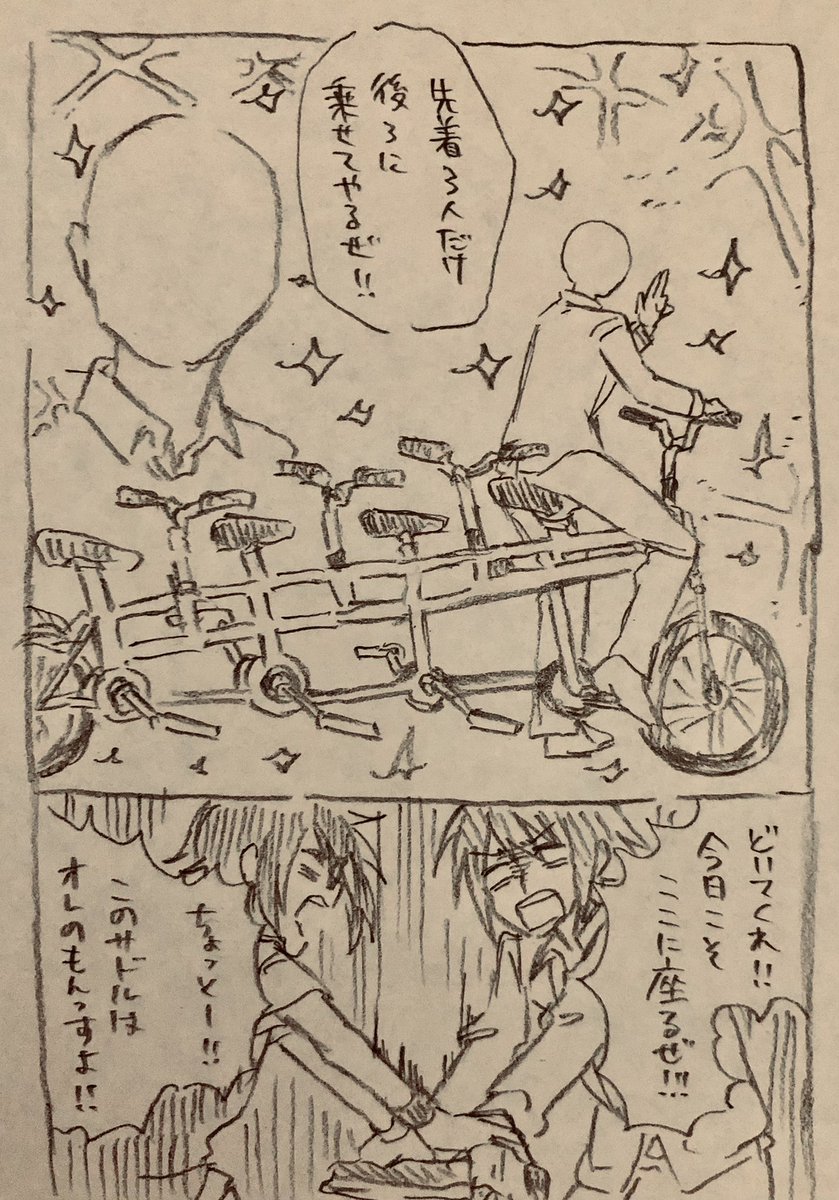 先着3人だけ
後ろに
乗せてやるぜ!!
どいてくれ!!
今日こそ
ここに座るぜ!!!
ちょっとー!!
このサドルは
オレのもんっすよ!!